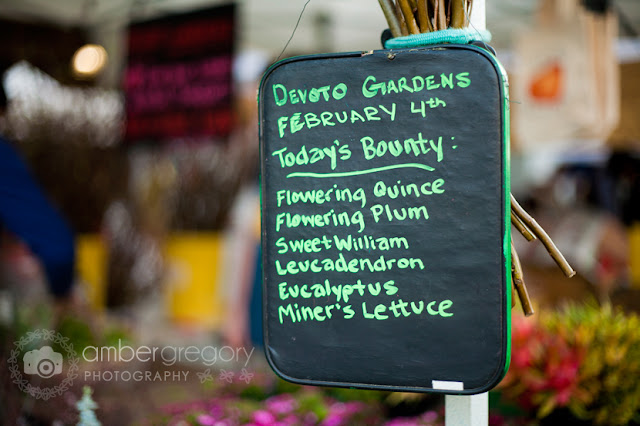 Devoto Gardens
February 4th
Today's Bounty:
Flowering Quince
Flowering Plum
Sweet William
Leucadendron
Eucalyptus
Miner's Lettuce
ambergregory
PHOTOGRAPHY